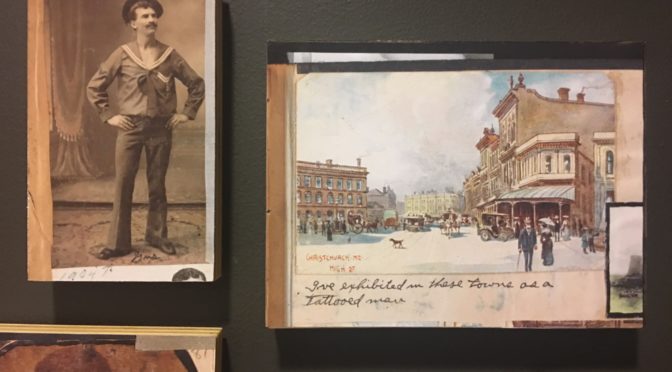 1904
CHRISTCHURCH. NZ
HIGH ST
I've exhibited in these towns as a
tattooed man
61